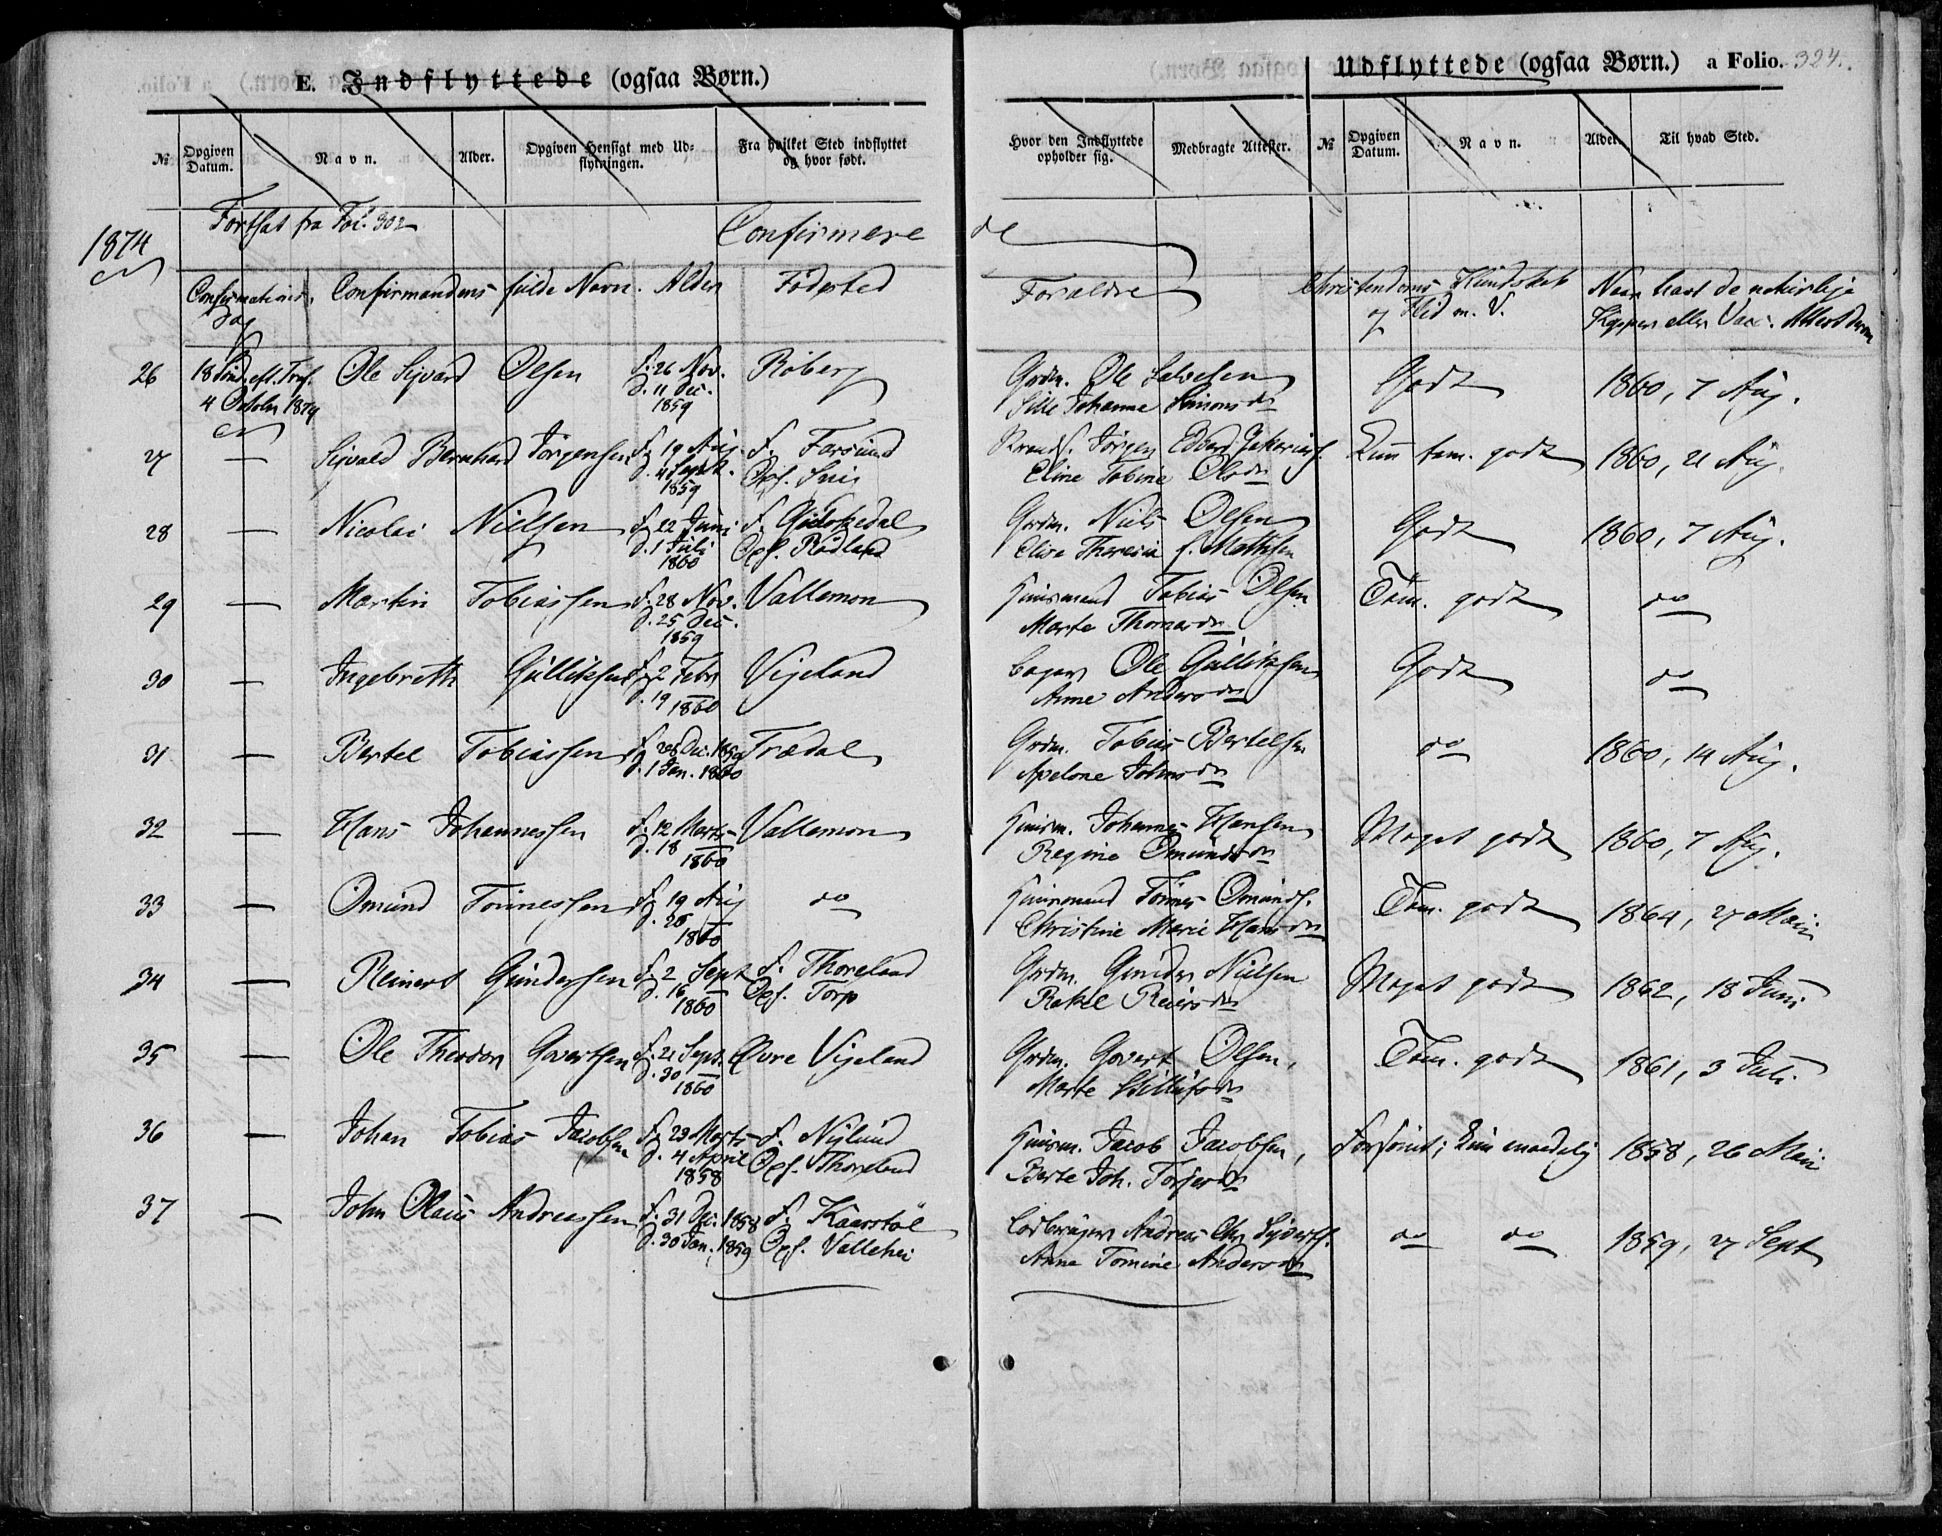 E. Indflyttede (ogsaa Børn.)
Udflyttede (ogsaa Børn.) a Folio. 324.
№ Opgiven Datum. Navn. Alder. Opgiven Hensigt med Udflytningen. Fra hvilket Sted indflyttet og hvor født.
Hvor den Indflyttede opholder sig. Medbragte Attester. № Opgiven Datum. Navn. Alder. Til hvad Sted.
1874 Fortsat fra Fol. 302 Confirmerede
Confirmations-Dag Confirmandens fulde Navn. Alder Fødested Forældre Christendoms Kundskab og Flid m. V. Naar havt de naturlige Kopper eller Vacc. Attest
26 18 Sønd. eft. Tref. 4 October 1874 Ole Sigvard Olsen f. 26 Nov. d. 11 Dec. 1859 Røberg
Grdm. Ole Salvesen Sille Johanne Simonsdr Godt 1860, 7 Aug.
27 — Sigvald Bernhard Jørgensen f. 19 Aug. d. 4 Septb. 1859 f. Farsund Opf.
Jørgen Edvard Eline Tobine Olsdr Kun tem. godt 1860, 21 Aug.
28 — Nicolai Nielsen f. 22 Juni d. 1 Juli 1860 f. Opf. Rødland
Grdm. Niels Olsen Elisa Theresia f. Mathisen Godt 1860, 7 Aug.
29 — Martin Tobiassen f. 28 Nov. d. 25 Dec. 1859 Vallemon
Huusmand Tobias Olsen Marte Thomasdr Tem. godt do
30 — Ingebreth Gullichsen f. 2 Febr d. 19 — 1860 Vigeland
Ole Gullichsen Anne Andersdr Godt do
31 — Bertel Tobiassen f. 28 Dec. 1859 d. 1 Jan. 1860 Trædal
Grdm. Tobias Bertelsen Apelone Johnsdr do 1860, 14 Aug.
32 — Hans Johannessen f. 12 Marts d. 18 — 1860 Vallemon
Huusm. Johannes Hansen Regine Omundsdr Meget godt 1860, 7 Aug.
33 — Omund Tønnessen f. 19 Aug d. 26 — 1860 do
Huusmand Tønnes Omunds. Christine Marie Hansdr Tem. godt 1864, 27 Mai
34 — Reinert Gundersen f. 2 Sept d. 16 — 1860 f. Thoreland Opf. Torp
Grdm. Gunder Nielsen Rakel Reiersdr Meget godt 1862, 18 Juni
35 — Ole Theodor Govertsen f. 21 Sept. d. 30 — 1860 Øvre Vigeland
Grdm. Govert Olsen, Marte Tem. godt 1861, 3 Juli
36 — Johan Tobias Jacobsen f. 23 Marts d. 4 April 1858 f. Nylund Opf. Thoreland
Huusm. Jacob Jacobsen, Berte Joh. Forsømt; kun maadelig 1858, 26 Mai
37 — John Olaus Andreassen f. 31 Dec. 1858 d. 30 Jan. 1859 f. Kaarstøl Opf. Vallehei
Andreas Chr. Siverts. Anne Tomine Andersdr do do 1859, 27 Sept